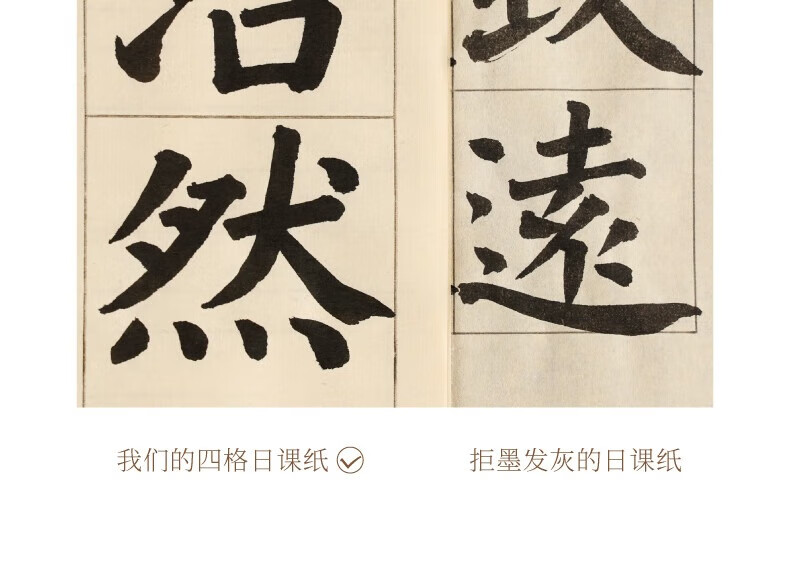 然
遠
我们的四格日课纸
拒墨发灰的日课纸